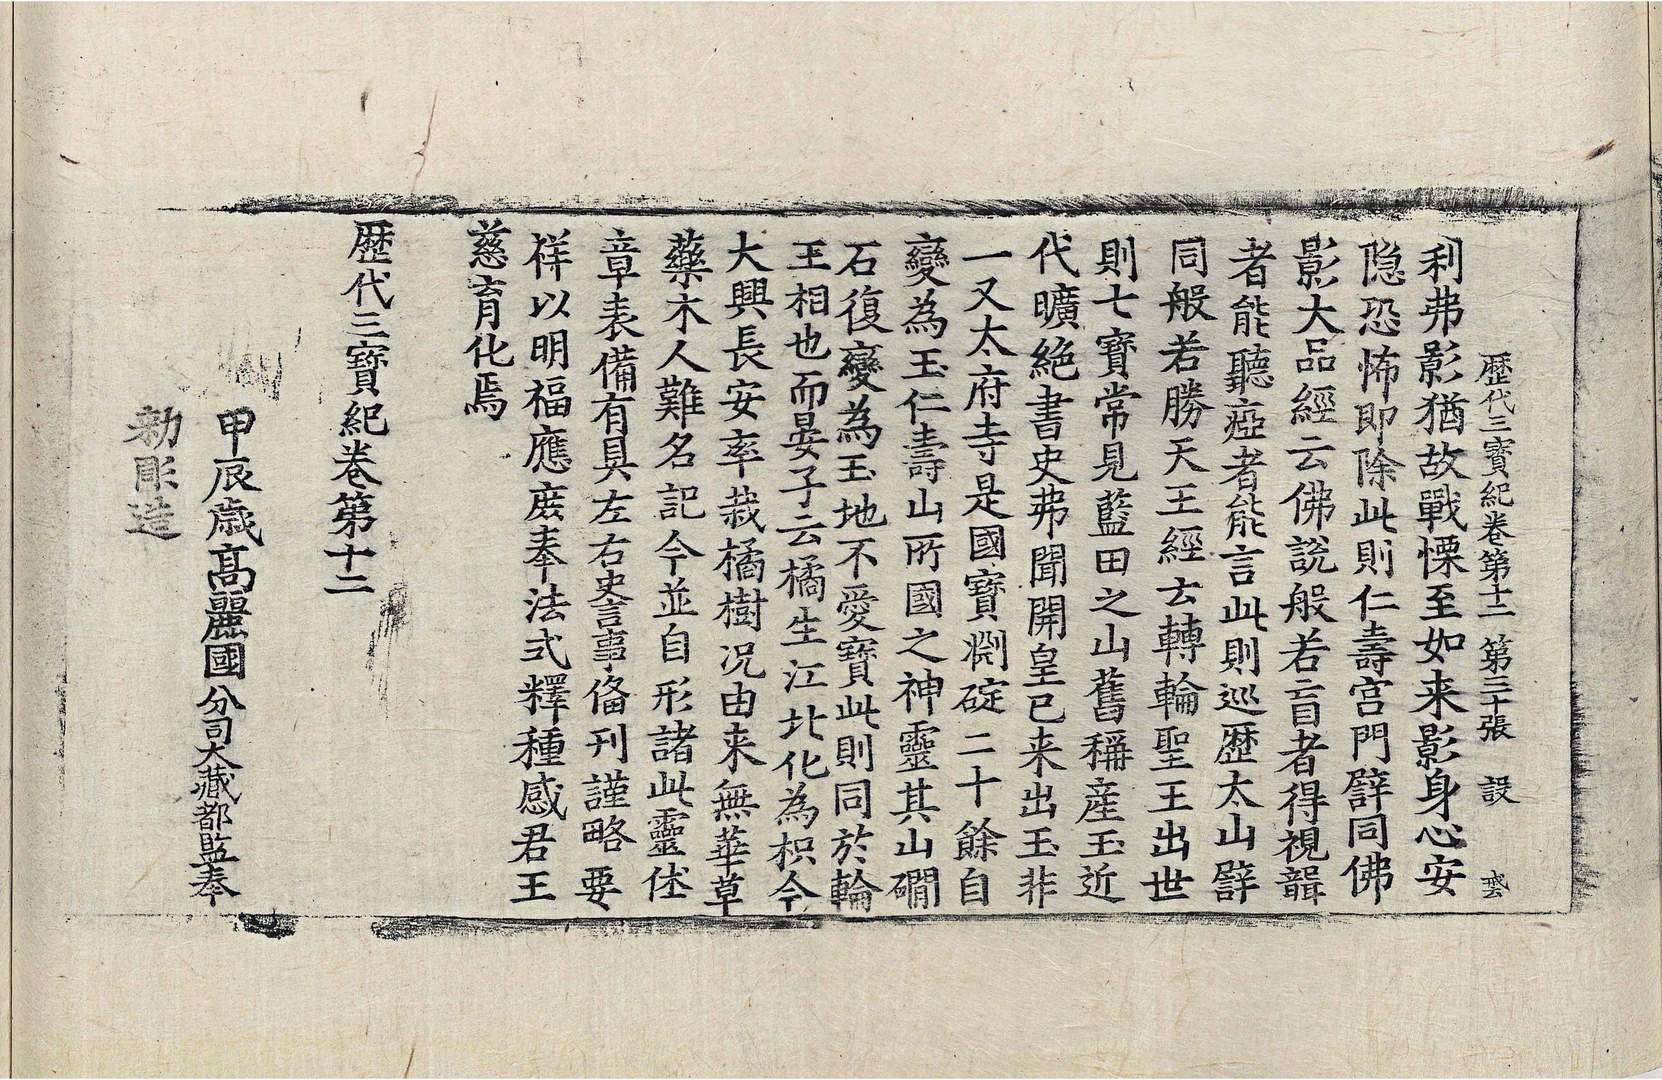 歴代三寶紀卷第十二 第三十張 設
利弗影猶故戰慄至如来影身心安
隐恐怖即除此則仁壽宫門躃同佛
影大品經云佛說般若盲者得視聾
者能聽瘂者能言此則巡歴太山躃
同般若勝天王經云轉輪聖王出世
則七寶常見藍田之山舊稱産玉近
代曠絶書史弗聞開皇已来出玉非
一又太府寺是國寶淵碇二十餘自
變為玉仁壽山所國之神靈其山磵
石復變為玉地不愛寶此則同於輪
王相也而晏子云橘生江北化為枳今
大興長安率栽橘樹况由来無華草
藥木人難名記今並自形諸此靈
章表備有具左右史言事俻刊謹略要
祥以明福應庶奉法式釋種感君王
慈育化焉
歴代三寶紀卷第十二
甲辰歳髙麗國分司大藏都監奉
勅彫造